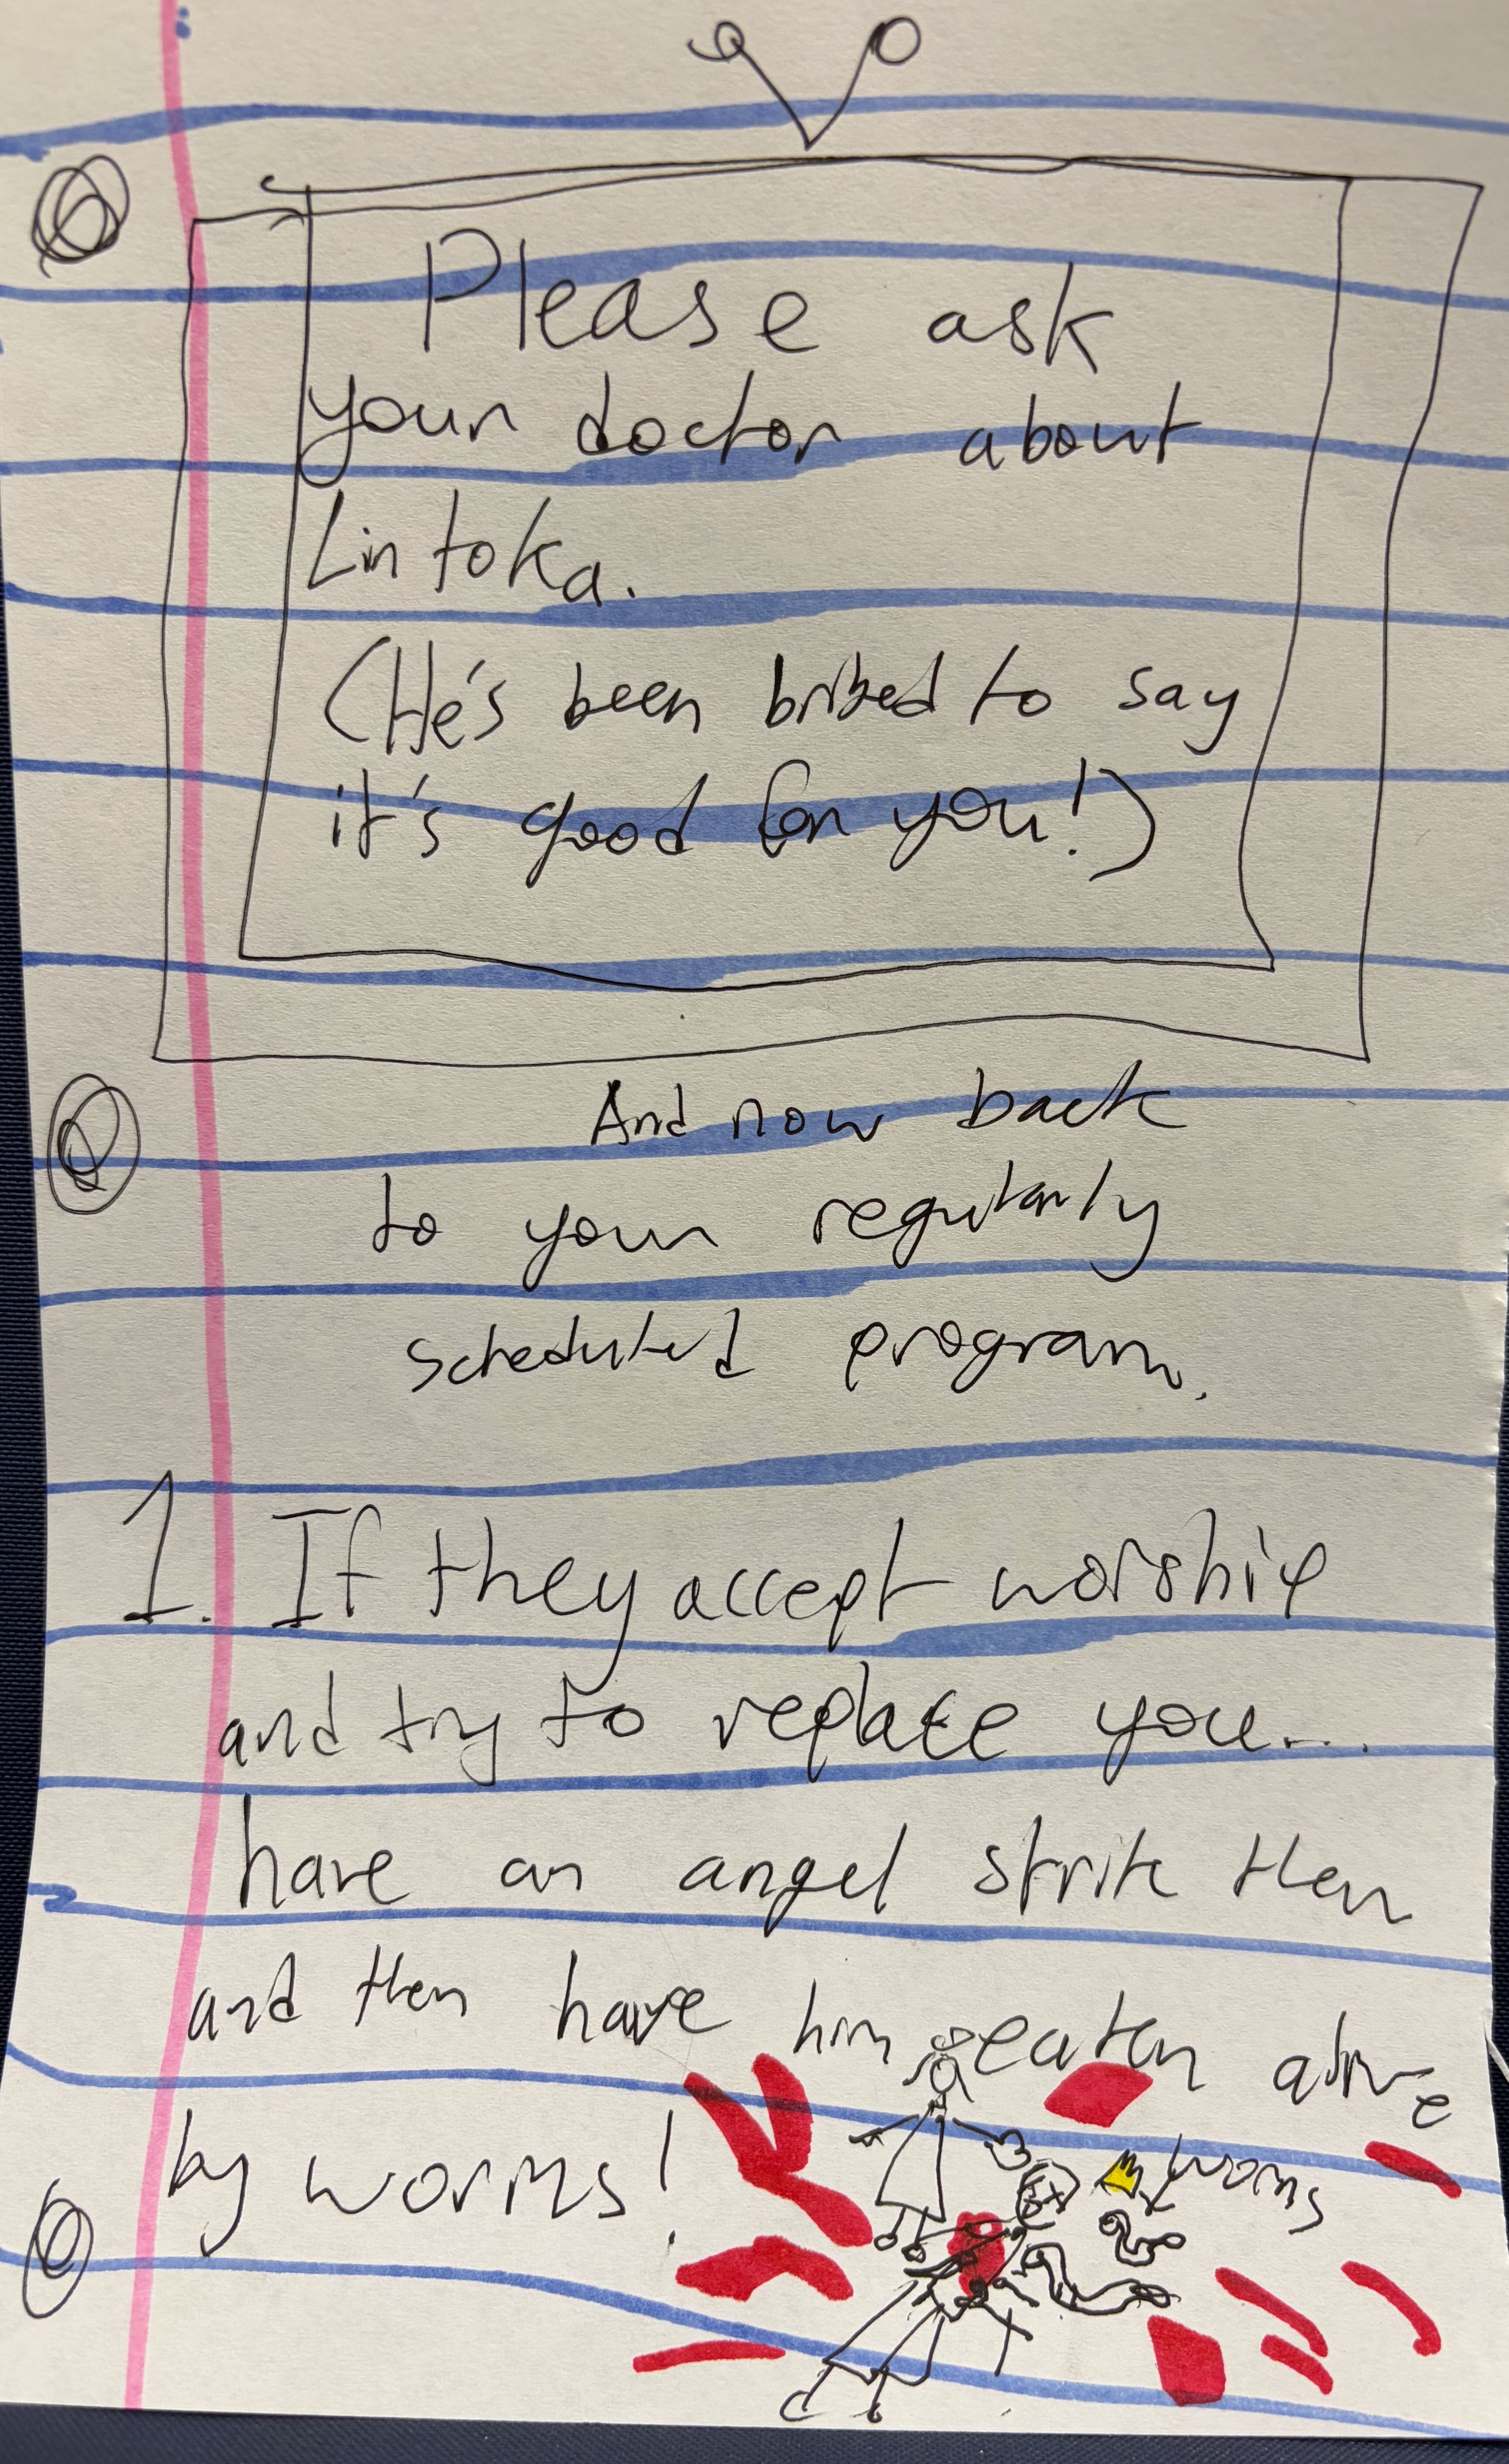 Please ask
your doctor about
Lintoka.
(He's been bribed to say
it's good for you!)
And now back
to your regularly
scheduled program.
1. If they accept worship
and try to replace you...
have an angel strike them
and then have him eaten alive
by worms!
worms